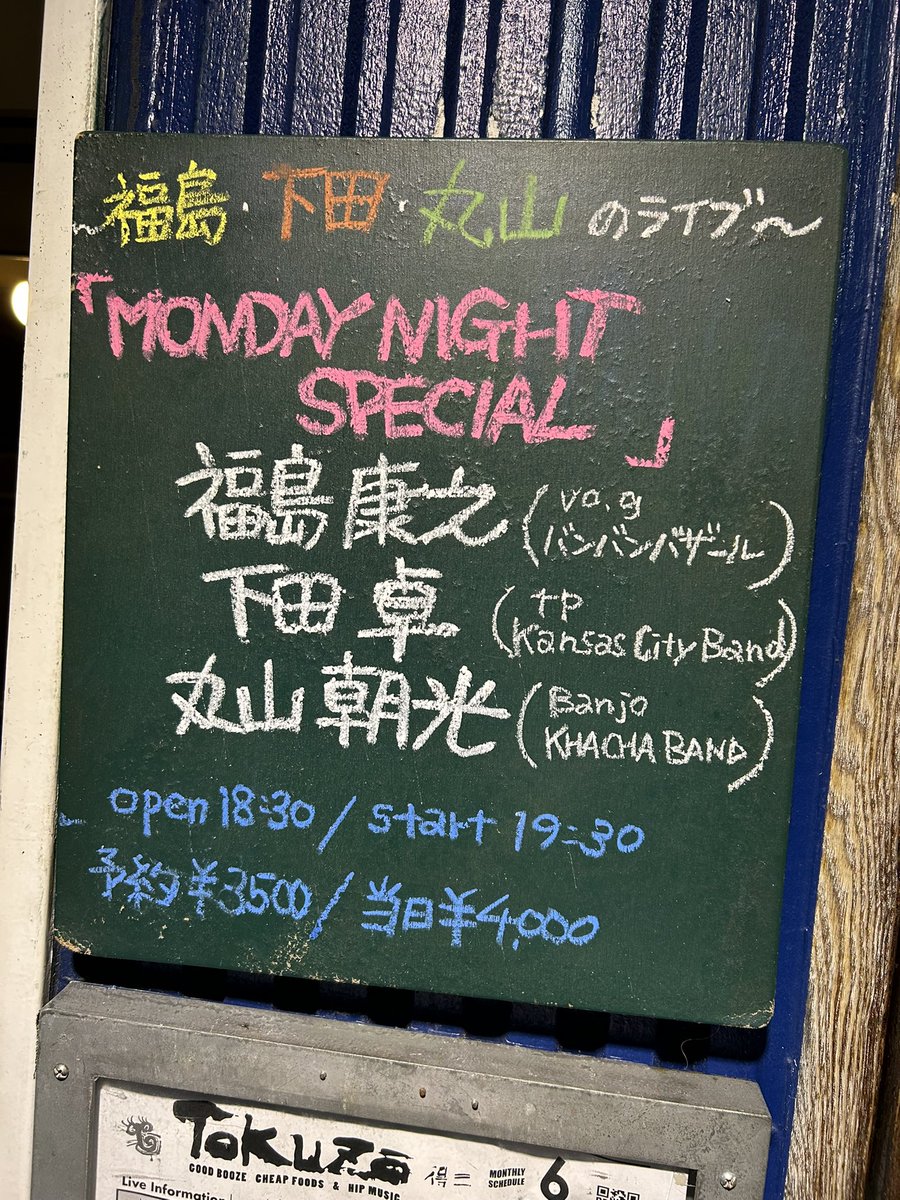 ~福島・下田・丸山のライブ~
「MONDAY NIGHT
SPECIAL」
福島康之(vo.g バンバンバザール)
下田 卓(tp Kansas City Band)
丸山朝光(Banjo KHACHA BAND)
open 18:30 / start 19:30
予約¥3500 / 当日¥4,000
TOKUZO
GOOD BOOZE CHEAP FOODS & HIP MUSIC
得三
MONTHLY SCHEDULE 6
Live Information